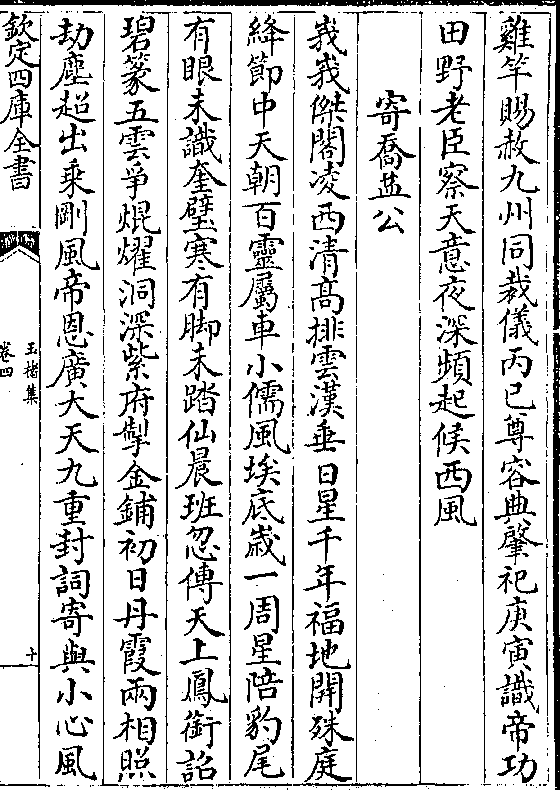 雞竿賜赦九州同裁儀丙巳尊容典肇祀庚寅識帝功
田野老臣察天意夜深頻起候西風
寄喬益公
峩峩傑閣凌西清高排雲漢垂日星千年福地開殊庭
絳節中天朝百靈屬車小儒風埃底歲一周星陪豹尾
有眼未識奎璧寒有脚未踏仙晨班忽傳天上鳳銜詔
碧篆五雲爭焜燿洞深紫府掣金鋪初日丹霞兩相照
劫塵超出乗剛風帝恩廣大天九重封詞寄與小心風
欽定四庫全書
玉楮集
卷四
十